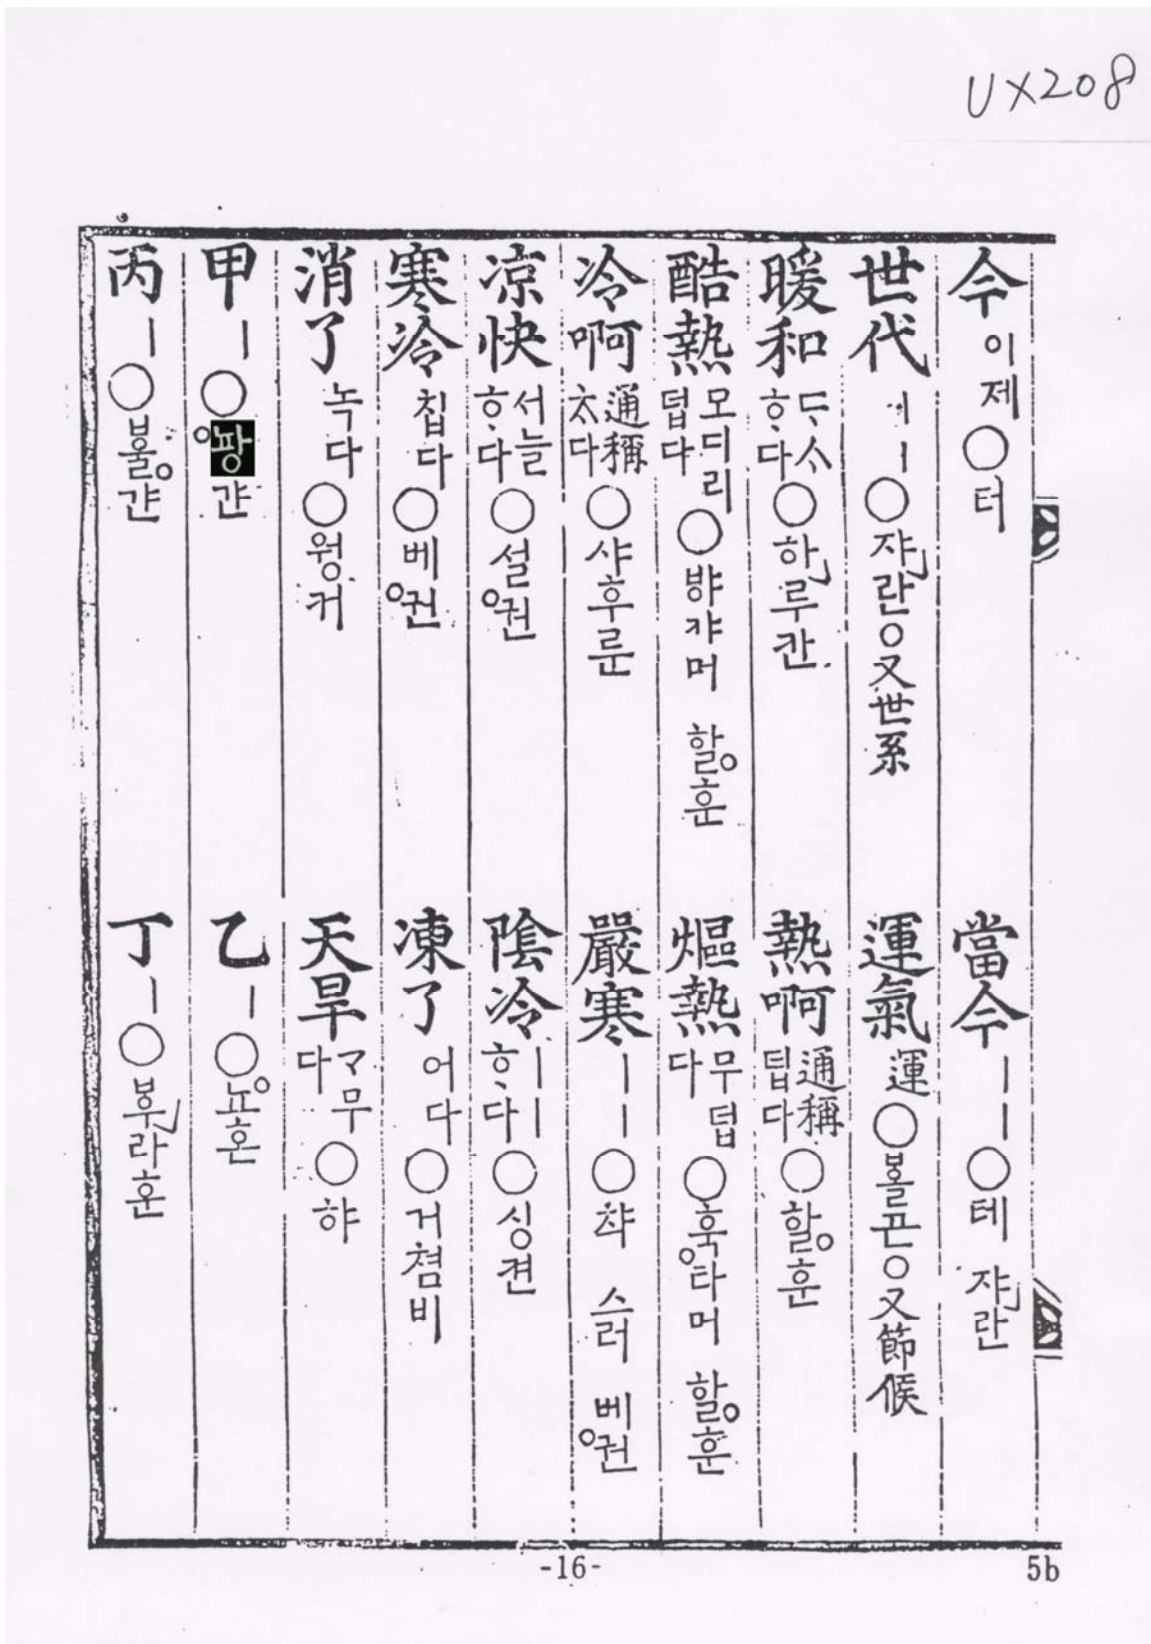 UX208
今 이제 ○ 터
當今 丨丨 ○ 테 쟈」란
世代 丨丨 ○ 쟈」란 ○ 又世系
運氣 運 ○ 볼곤 ○ 又節候
暖和 ᄃᆞᄉᆞᄒᆞ다 ○ 하」루칸
熱啊 通稱덥다 ○ 할。훈
酷熱 모디리덥다 ○ 뱌쟈머 할。훈
熰熱 무덥다 ○ 훅。타머 할。훈
冷啊 通稱太다 ○ 샤후룬
嚴寒 丨丨 ○ 챡 스러 베。권
凉快 서늘ᄒᆞ다 ○ 설。권
陰冷 丨丨ᄒᆞ다 ○ 싱견
寒冷 칩다 ○ 베。권
凍了 어다 ○ 거쳠비
消了 녹다 ○ 웡커
天旱 ᄀᆞ무다 ○ 햐
甲 丨 ○ 。퍙갼
乙 丨 ○ 뇨。혼
丙 丨 ○ 불。갼
丁 丨 ○ 부」라훈
-16-
5b